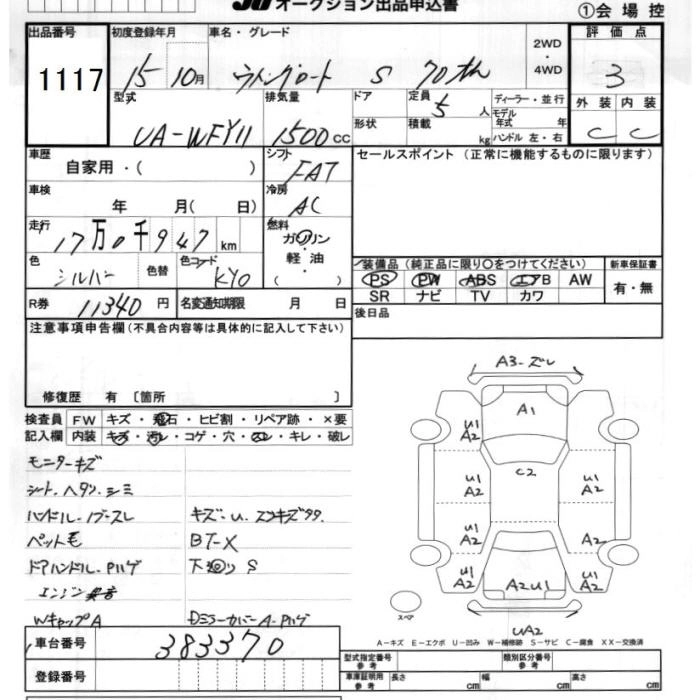 JU オークション出品申込書
①会 場 控
出品番号 初度登録年月 車名・グレード 2WD ・ 4WD 評 価 点
1117 15 10月 ウイングロード S 3
型式 排気量 ドア 定員 5 人 ディーラー・並行 外 装 内 装
UA-WFY11 1500 CC 形状 積載 kg モデル年式 年 ハンドル 左・右 C C
車歴 自家用・( ) シフト FAT セールスポイント (正常に機能するものに限ります)
車検 年 月( 日) 冷房 AC
走行 17万0千947 km 燃料 ガソリン・軽 油・( )
色 シルバー 色替 色コード KY0
装備品 (純正品に限り○をつけてください) 新車保証書
PS PW ABS エアB AW 有・無
SR ナビ TV カワ
R券 11340 円 名変通知期限 月 日 後日品
注意事項申告欄(不具合内容等は具体的に記入して下さい)
修復歴 有 〔箇所 〕
検査員 FW キズ・飛石・ヒビ割・リペア跡・×要
記入欄 内装 キズ・汚レ・コゲ・穴・スレ・キレ・破レ
モニターキズ
シート、ヘタリ、シミ
ハンドル・ノブスレ
キズ・U、
ペット毛
BT-X
ドアハンドル、Pハゲ
下廻り S
エンジン異音
WキャップA
DミラーカバーA-Pハゲ
車台番号 383370
登録番号
A3-ズレ
A1
U1 A2
C2
U1 A2
U1 A2
A2
U1 A2
A2
U1 A2
A2U1
U1 A2
UA2
スペア
A-キズ E-エクボ U-凹み W-補修跡 S-サビ C-腐食 XX-交換済
型式指定番号 参考 類別区分番号 参考
車庫証明用 参考 長さ cm 幅 cm 高さ cm